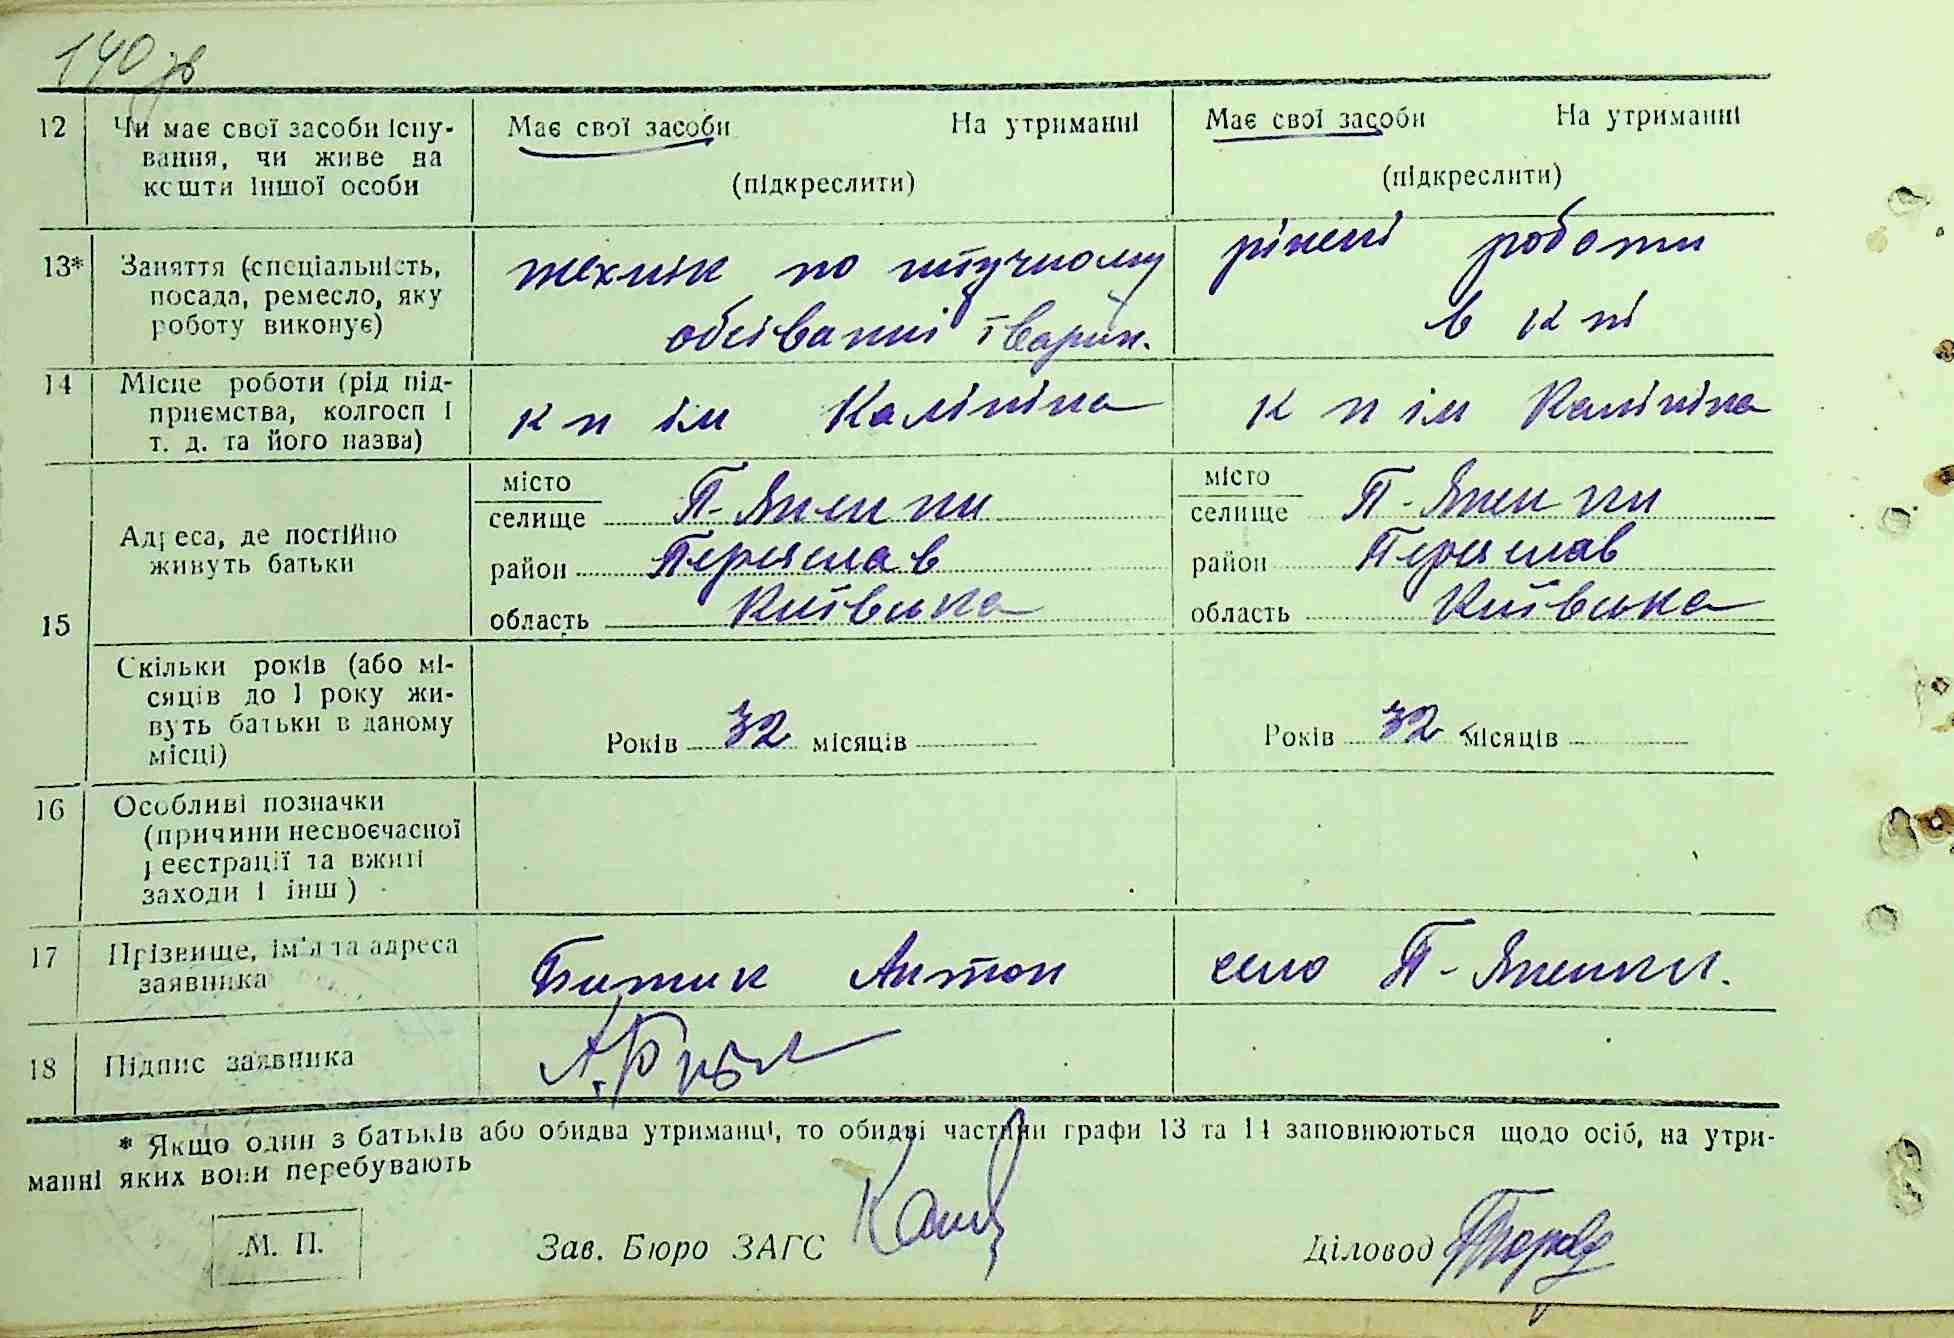 140 зв
12 Чи має свої засоби існу-
вання, чи живе на
кошти іншої особи
Має свої засоби На утриманні
(підкреслити)
Має свої засоби На утриманні
(підкреслити)
13* Заняття (спеціальність,
посада, ремесло, яку
роботу виконує)
технік по штучному
обсіванні тварин.
різні роботи
в к пі
14 Місце роботи (рід під-
приємства, колгосп і
т. д. та його назва)
к п ім Калініна
к п ім Калініна
15 Адреса, де постійно
живуть батьки
місто
селище П-Яненки
район Переяслав
область Київська
місто
селище П-Яненки
район Переяслав
область Київська
Скільки років (або мі-
сяців до 1 року жи-
вуть батьки в даному
місці)
Років 32 місяців
Років 32 місяців
16 Особливі позначки
(причини несвоєчасної
реєстрації та вжиті
заходи і інш)
17 Прізвище, ім'я та адреса
заявника
Битик Антон село П-Яненки.
18 Підпис заявника
* Якщо один з батьків або обидва утриманці, то обидві частини графи 13 та 14 заповнюються щодо осіб, на утри-
манні яких вони перебувають
М. П.
Зав. Бюро ЗАГС
Діловод